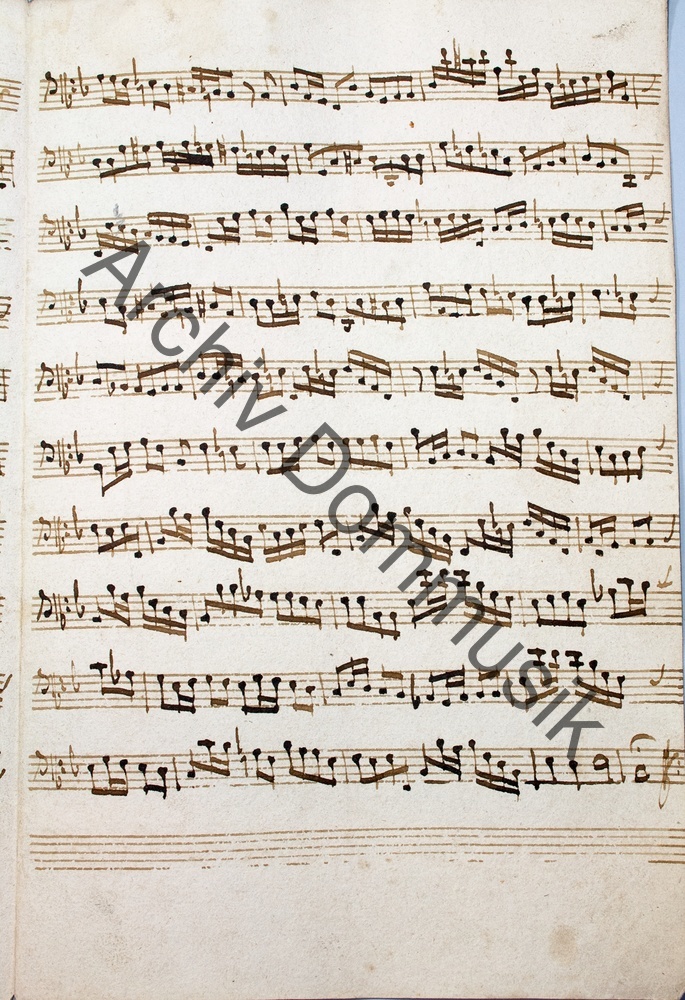 Archiv Dommusik